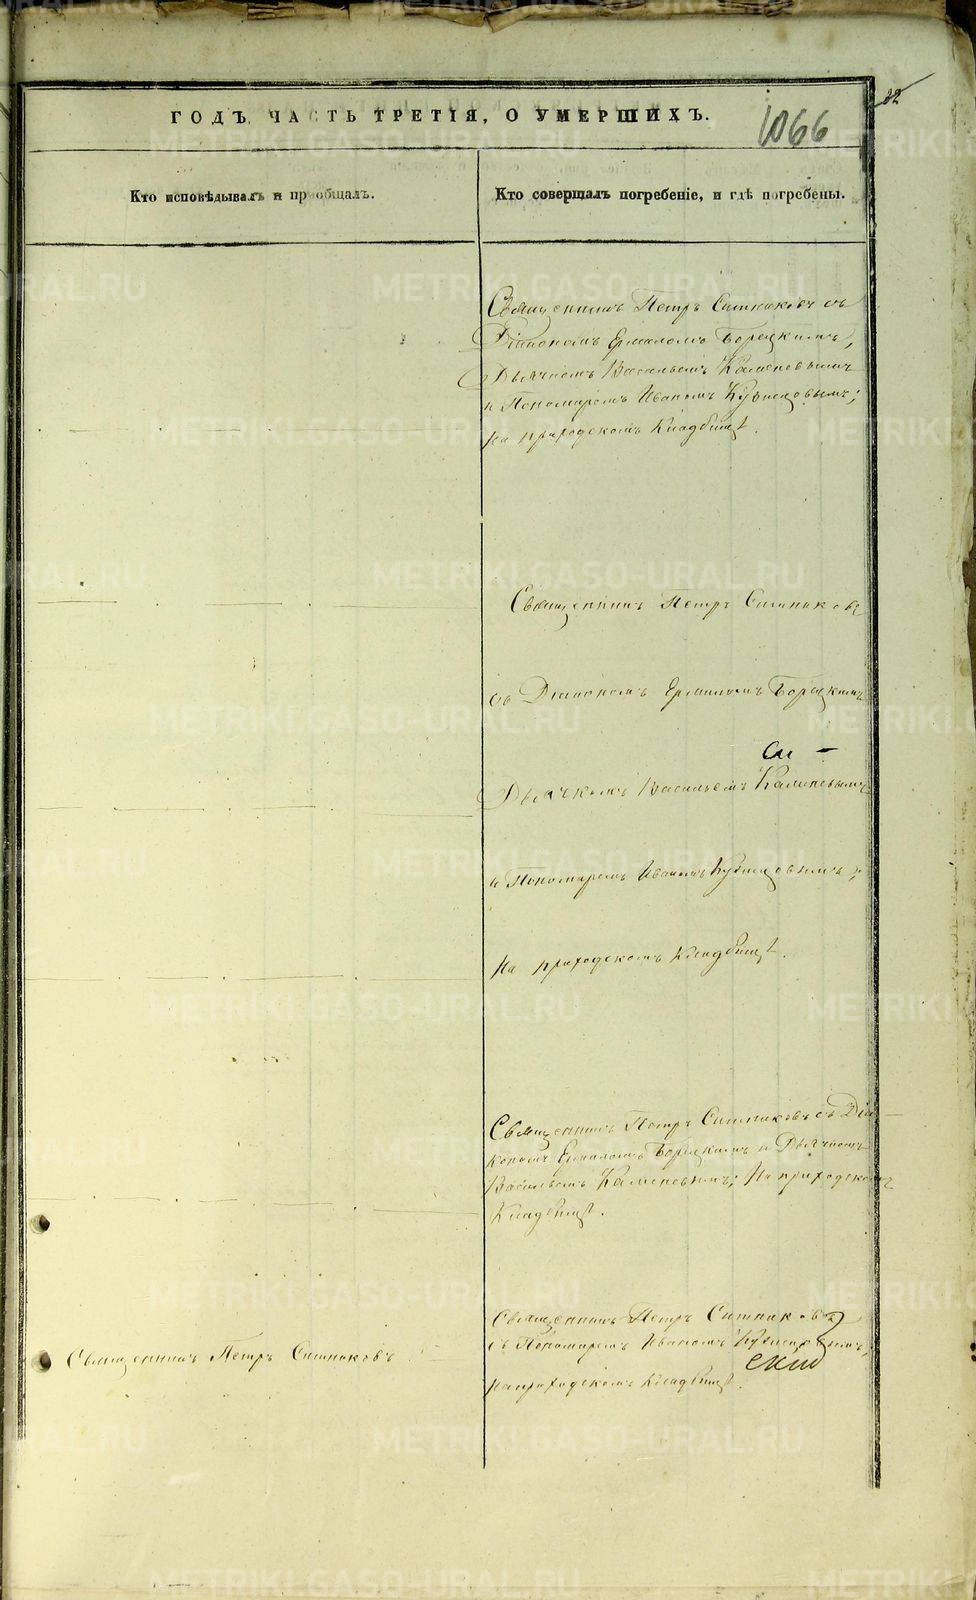 ГОДЪ, ЧАСТЬ ТРЕТІЯ, О УМЕРШИХЪ.
1066
Кто исповѣдывалъ и пріобщалъ.
Кто совершалъ погребеніе, и гдѣ погребены.
Священникъ Петръ Ситниковъ съ
Діакономъ Ермиломъ Борецкимъ,
Дьячкомъ Васильемъ Каменевымъ
и Пономаремъ Иваномъ Кузнецовымъ;
На приходскомъ Кладбищѣ.
Священникъ Петръ Ситниковъ
съ Діакономъ Ермиломъ Борецкимъ
Дьячкомъ Васильемъ Каменевымъ
и Пономаремъ Иваномъ Кузнецовымъ;
На приходскомъ Кладбищѣ.
Священникъ Петръ Ситниковъ съ Діа-
кономъ Ермиломъ Борецкимъ и Дьячкомъ
Васильемъ Каменевымъ; На приходскомъ
Кладбищѣ.
Священникъ Петръ Ситниковъ
Священникъ Петръ Ситниковъ
съ Пономаремъ Иваномъ Кузнецовымъ;
На приходскомъ Кладбищѣ.
METRIKI.GASO-URAL.RU